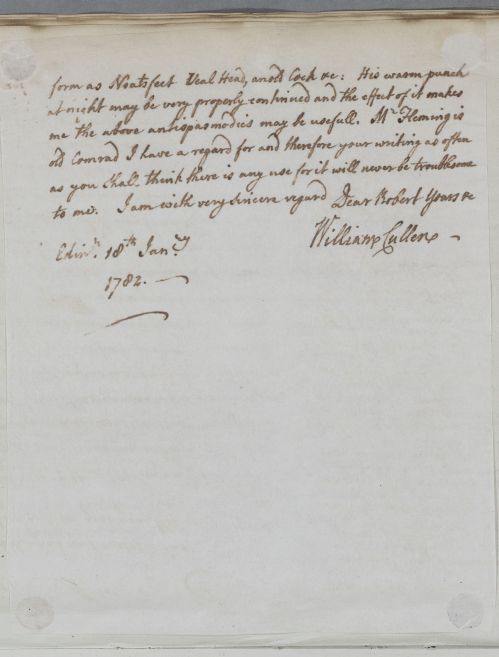 form as Neatsfeet Veal Head, an old Cock &c: His warm punch
at night may be very properly continued and the effect of it makes
me think the above antispasmodic may be usefull. Mr Fleming is
old Comrad I have a regard for and therefore your writing as often
as you shall think there is any use for it will never be troublesome
to me. I am with very sincere regard Dear Robert Yours &c
William Cullen
Edinr. 18th Jany
1782.